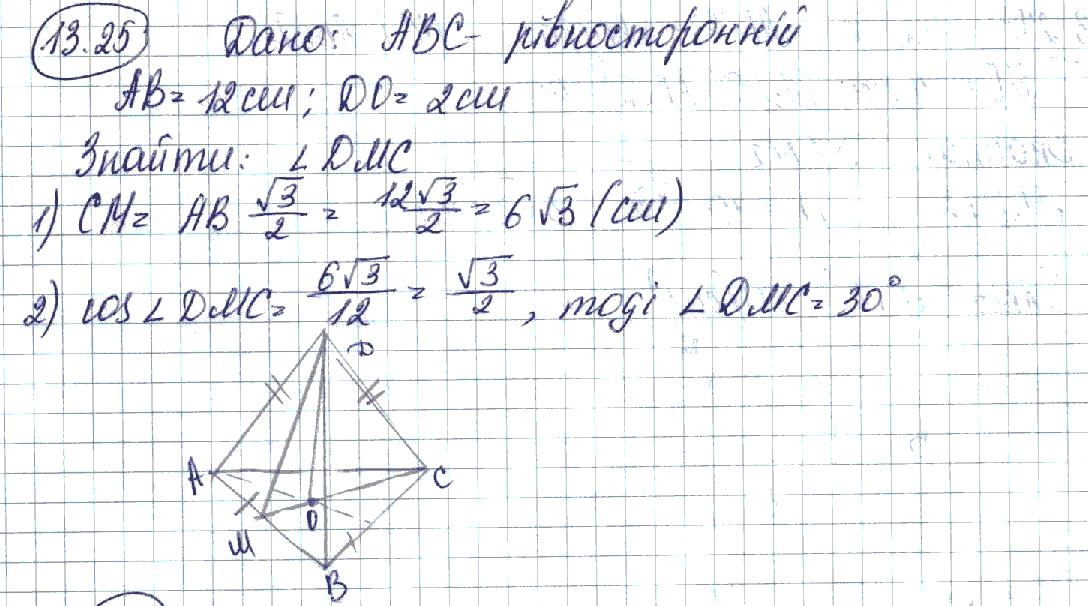 13.25 Дано: ABC- рівносторонній
AB= 12см; DO= 2см
Знайти: ∠DMC
1) CM= AB √3/2 = 12√3/2 = 6√3 (см)
2) cos∠DMC= 6√3/12 = √3/2, тоді ∠DMC=30°
D
A
C
O
M
B